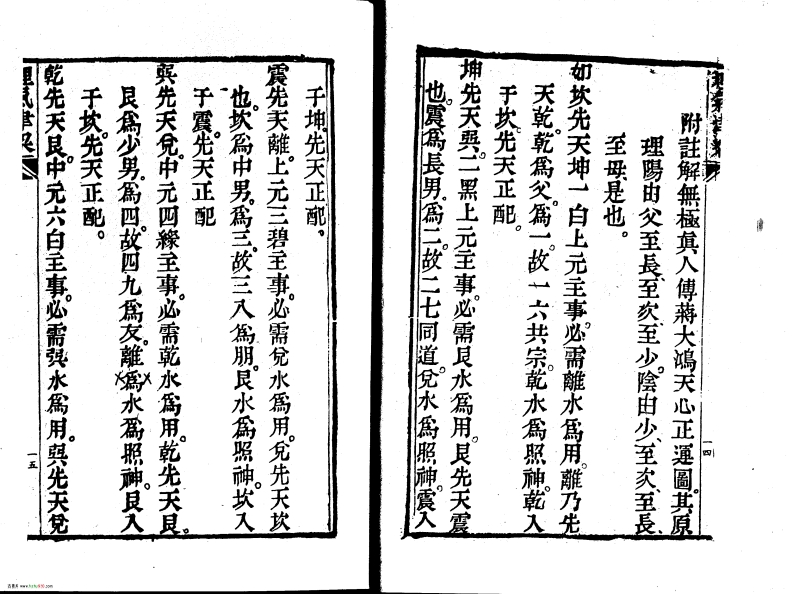 附註解無極眞人傳蔣大鴻天心正運圖其原
理陽由父至長至次至少陰由少至次至長
至母是也。
如坎先天坤一白上元主事必需離水爲用。離乃先
天乾乾爲父。爲一。故一六共宗。乾水爲照神。乾入
于坎。先天正配。
坤先天巽。二黑上元主事。必需艮水爲用。艮先天震
也。震爲長男。爲二。故二七同道。兌水爲照神。震入
一四
于坤。先天正配。
震先天離。上元三碧主事。必需兌水爲用。兌先天坎
也。坎爲中男。爲三。故三八爲朋。艮水爲照神。坎入
于震。先天正配
巽先天兌。中元四綠主事。必需乾水爲用。乾先天艮。
艮爲少男。爲四。故四九爲友。離爲水爲照神。艮入
于坎。先天正配。
乾先天艮。中元六白主事。必需巽水爲用。巽先天兌
一五